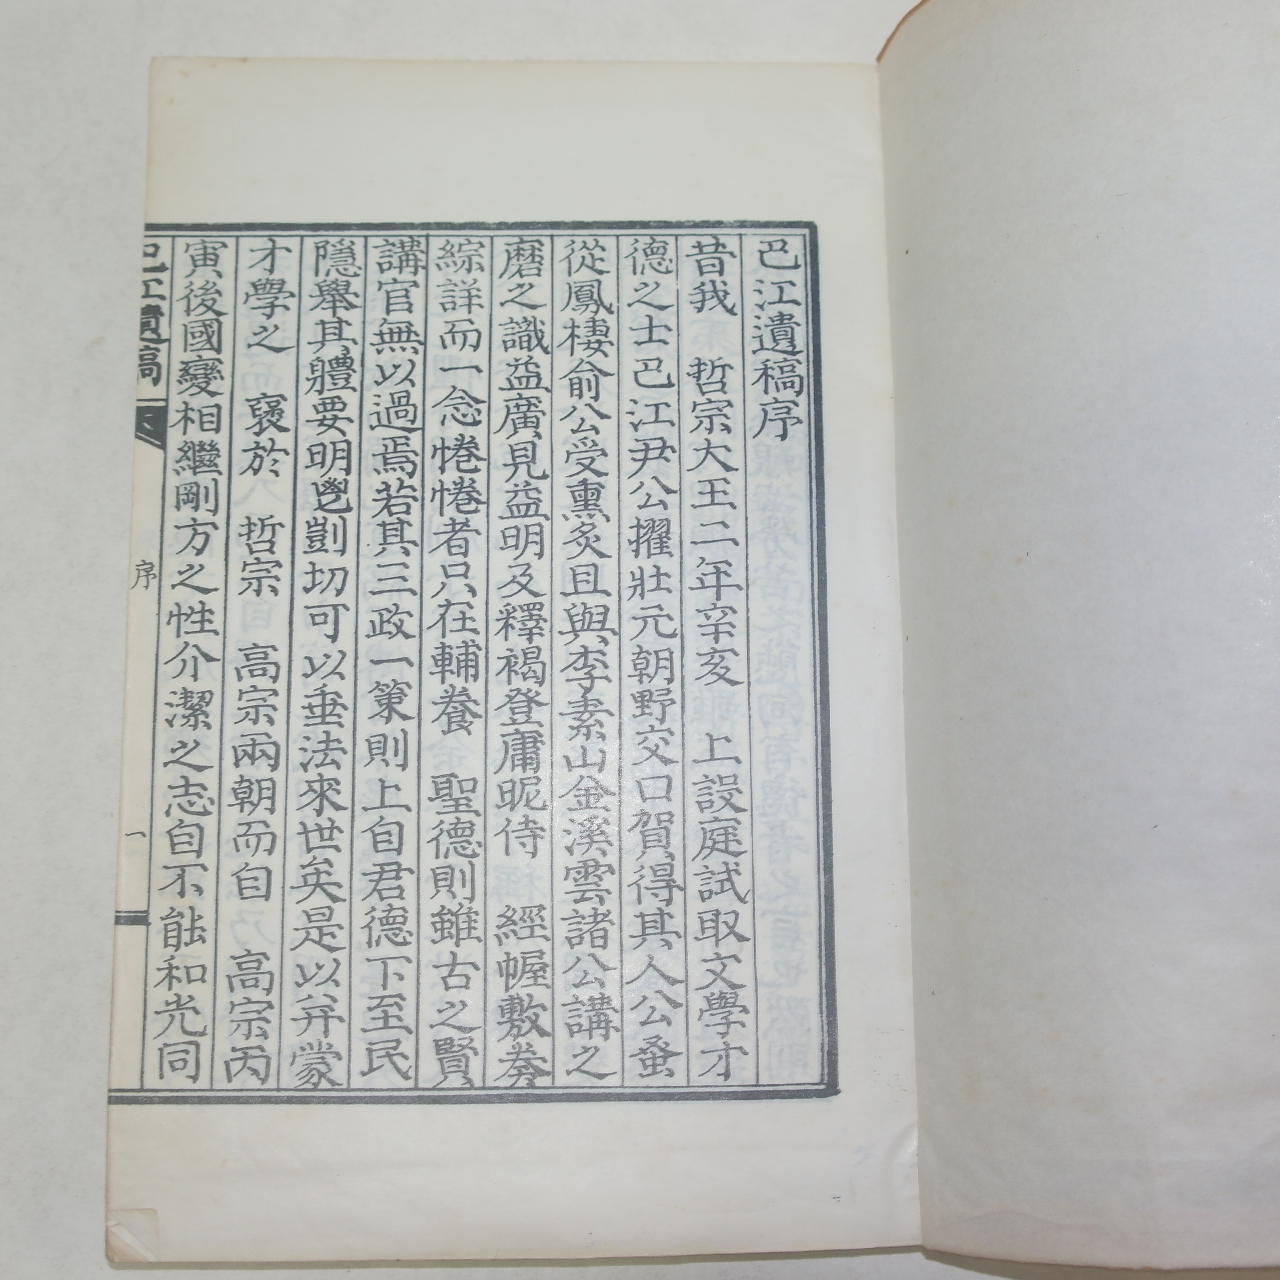 巴江遺稿序
昔我　哲宗大王二年辛亥　上設庭試取文學才
德之士巴江尹公擢壯元朝野交口賀得其人公蚤
從鳳棲俞公受熏炙且與李素山金溪雲諸公講之
磨之識益廣見益明及釋褐登庸昵侍　經幄敷奏
綜詳而一念惓惓者只在輔養　聖德則雖古之賢
講官無以過焉若其三政一策則上自君德下至民
隱舉其體要明鬯剴切可以垂法來世矣是以弁蒙
才學之　褒於　哲宗　高宗兩朝而自　高宗丙
寅後國變相繼剛方之性介潔之志自不能和光同
巴江遺稿
序
一